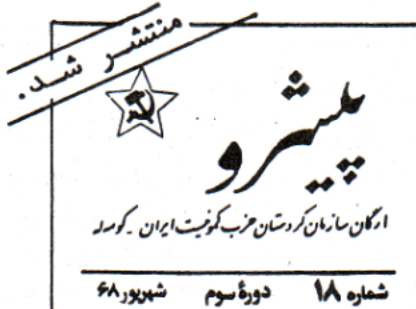 منتشر شد.
پیشرو
ارگان سازمان کردستان حزب کمونیست ایران - کومه‌له
شماره ۱۸ دورهٔ سوم شهریور ۶۸